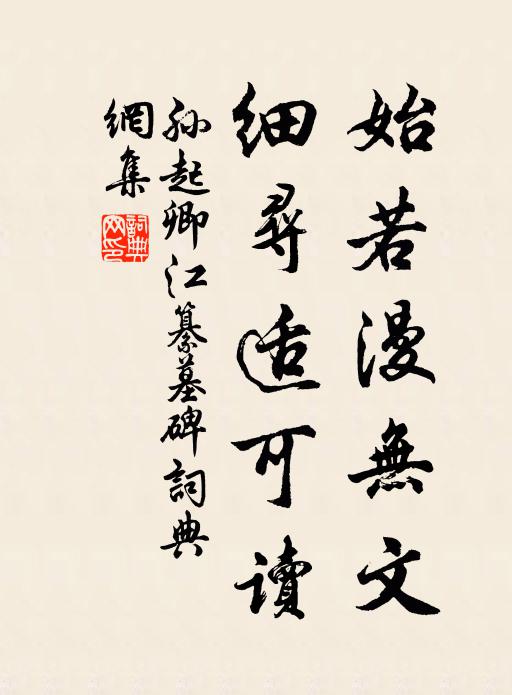 始若漫無文
細尋適可讀
孫起卿江纂墓碑詞典
網集
詞典
網印